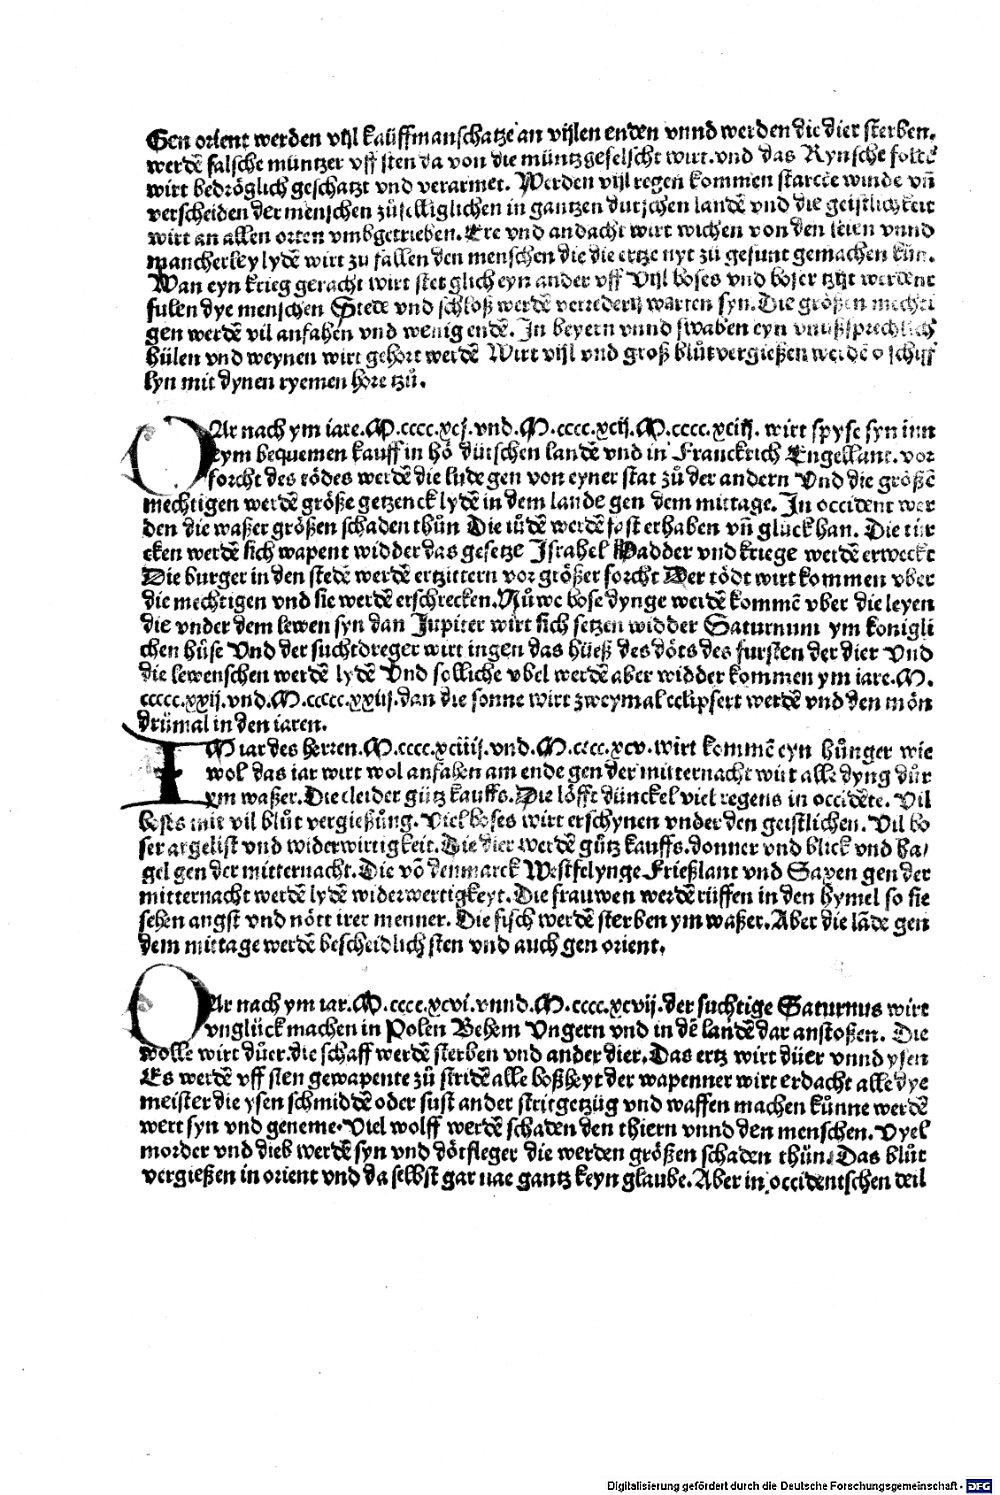 Gen orient werden vijl kaüffmanschatze an vijlen enden vnnd werden die dier sterben.
werdē falsche müntzer vff sten da von die müntzgefelscht wirt.vnd das Rynsche folck
wirt bedröglich geschatzt vnd verarmet. Werden vijl regen kommen starcke winde vñ
verscheiden der menschen züfelliglichen in gantzen dutzchen landē vnd die geistlichkeit
wirt an allen orten vmbgetrieben. Ere vnd andacht wirt wichen von den leien vnnd
mancherley lydē wirt zu fallen den menschen die die ertze nyt zü gesunt gemachen kün.
Wan eyn krieg geracht wirt stet glich eyn ander vff Vijl boses vnd boser tzijt werdent
fulen dye menschen Stede vnd schloß werdē verredery warten syn. Die größen mechti
gen werdē vil anfahen vnd wenig endē. In beyern vnnd swaben eyn vnußsprechlich
hülen vnd weynen wirt gehort werdē Wirt vijl vnd groß blůtvergießen werdē o schiff
lyn mit dynen ryemen hore tzů.
DAr nach ym iare.M.cccc.xcj.vnd.M.cccc.xcij.M.cccc.xciij. wirt spyse syn inn
eym bequemen kauff in hō dütschen landē vnd in Franckrich Engellant. vor
forcht des tödes werdē die lude gen von eyner stat zů der andern Vnd die größē
mechtigen werdē größe getzenck lydē in dem lande gen dem mittage. In occident wer
den die waßer größen schaden thůn Die iůdē werdē fast erhaben vñ glück han. Die tür
cken werdē sich wapent widder das gesetze Israhel Hadder vnd kriege werdē erweckt
Die burger in den stedē werdē ertzittern vor größer forcht Der tödt wirt kommen vber
die mechtigen vnd sie werdē erschrecken. Nůwe bose dynge werdē kommē vber die leyen
die vnder dem lewen syn dan Jupiter wirt sich setzen widder Saturnum ym konigli
chen hüse Vnd der suchtdreger wirt ingen das hüeß des döts des fursten der dier Vnd
die lewenschen werdē lydē Vnd solliche vbel werdē aber widder kommen ym iare.M.
ccccc.xxij.vnd.M.ccccc.xxiij.dan die sonne wirt zweymal eclipsert werdē vnd den môn
drümal in den iaren.
IM iar des herren.M.cccc.xciiij.vnd.M.cccc.xcv.wirt kommē eyn hůnger wie
wol das iar wirt wol anfahen am ende gen der mitternacht wirt alle dyng důr
ym waßer. Die cleider gütz kauffs. Die löfft dünckel viel regens in occidēte. Vil
boses mit vil blůt vergießüng. Viel boses wirt erschynen vnder den geistlichen. Vil bo
ser argelist vnd widerwirtigkeit. Die dier werdē gütz kauffs.donner vnd blick vnd ha/
gel gen der mitternacht. Die vō denmarck Westfelynge Frießlant vnd Saxen gen der
mitternacht werdē lydē widerwertigkeyt. Die frauwen werdē rüffen in den hymel so sie
sehen angst vnd nött irer menner. Die fisch werdē sterben ym waßer. Aber die lādē gen
dem mittage werdē bescheidlich sten vnd auch gen orient.
DAr nach ym iar.M.cccc.xcvi.vnnd.M.cccc.xcvij.der suchtige Saturnus wirt
vnglück machen in Polen Behem Vngern vnd in dē landē dar anstoßen. Die
wolle wirt důer.die schaff werdē sterben vnd ander dier. Das ertz wirt düer vnnd ysen
Es werdē vff sten gewapente zů stridē alle boßheyt der wapenner wirt erdacht alle dye
meister die ysen schmiddē oder sust ander stritgetzüg vnd waffen machen kůnne werdē
wert syn vnd geneme. Viel wolff werdē schaden den thiern vnnd den menschen. Vyel
morder vnd dieb werdē syn vnd dötfleger die werden größen schaden thůn. Das blůt
vergießen in orient vnd da selbst gar nae gantz keyn glaube. Aber in occidentschen deil
Digitalisierung gefördert durch die Deutsche Forschungsgemeinschaft - DFG